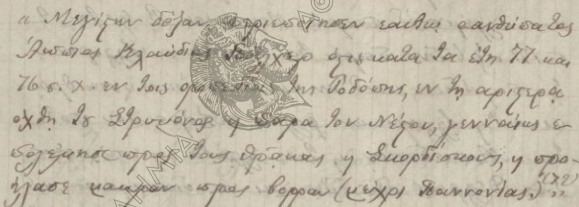 " Μεγίστην δόξαν περιεποίησεν εαυτώ ο ανθύπατος
Άππιος Κλαύδιος όστις κατά τα έτη 77 και
76 π. χ. εν τοις της Ροδόπης, εν τη αριστερά
όχθη του Στρυμόνος ή παρά τον Νέστον, γενναίως ε-
πολέμησε προς τους Θράκας ή Σκορδίσκους, ή προ-
ήλασε προς βορράν (μέχρι Παννονίας)
ΑΚΑΔΗΜΙΑ